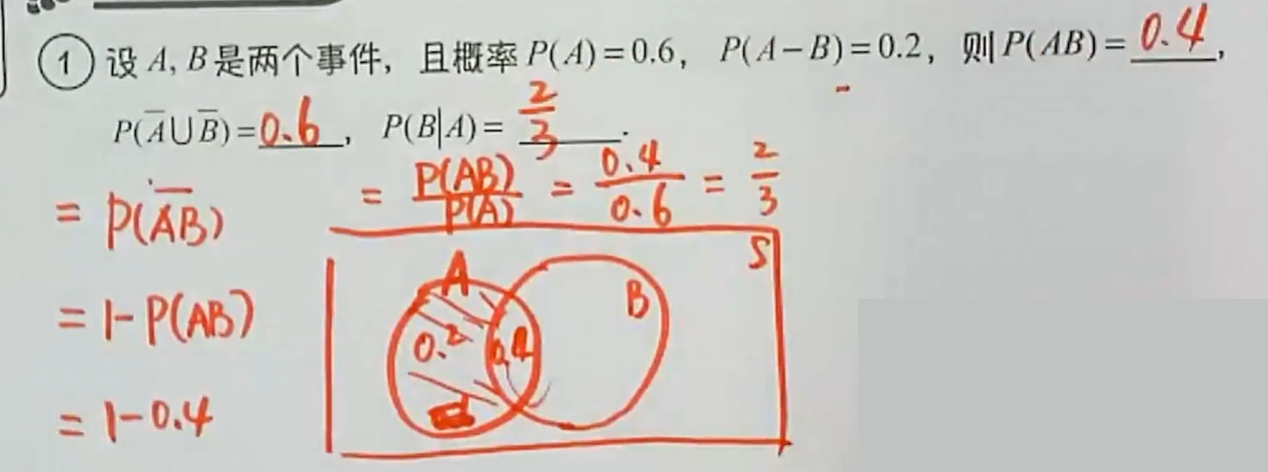 ① 设 A, B 是两个事件, 且概率 P(A)=0.6, P(A−B)=0.2, 则 P(AB)= 0.4,
P(A̅∪B̅)=0.6, P(B|A)= 2/3.
= P(A̅B̅) = P(AB)/P(A) = 0.4/0.6 = 2/3
= 1-P(AB)
= 1-0.4
S
A
B
0.2 0.4